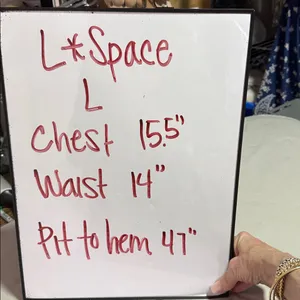 L*Space
L
Chest 15.5"
Waist 14"
Pit to hem 47"